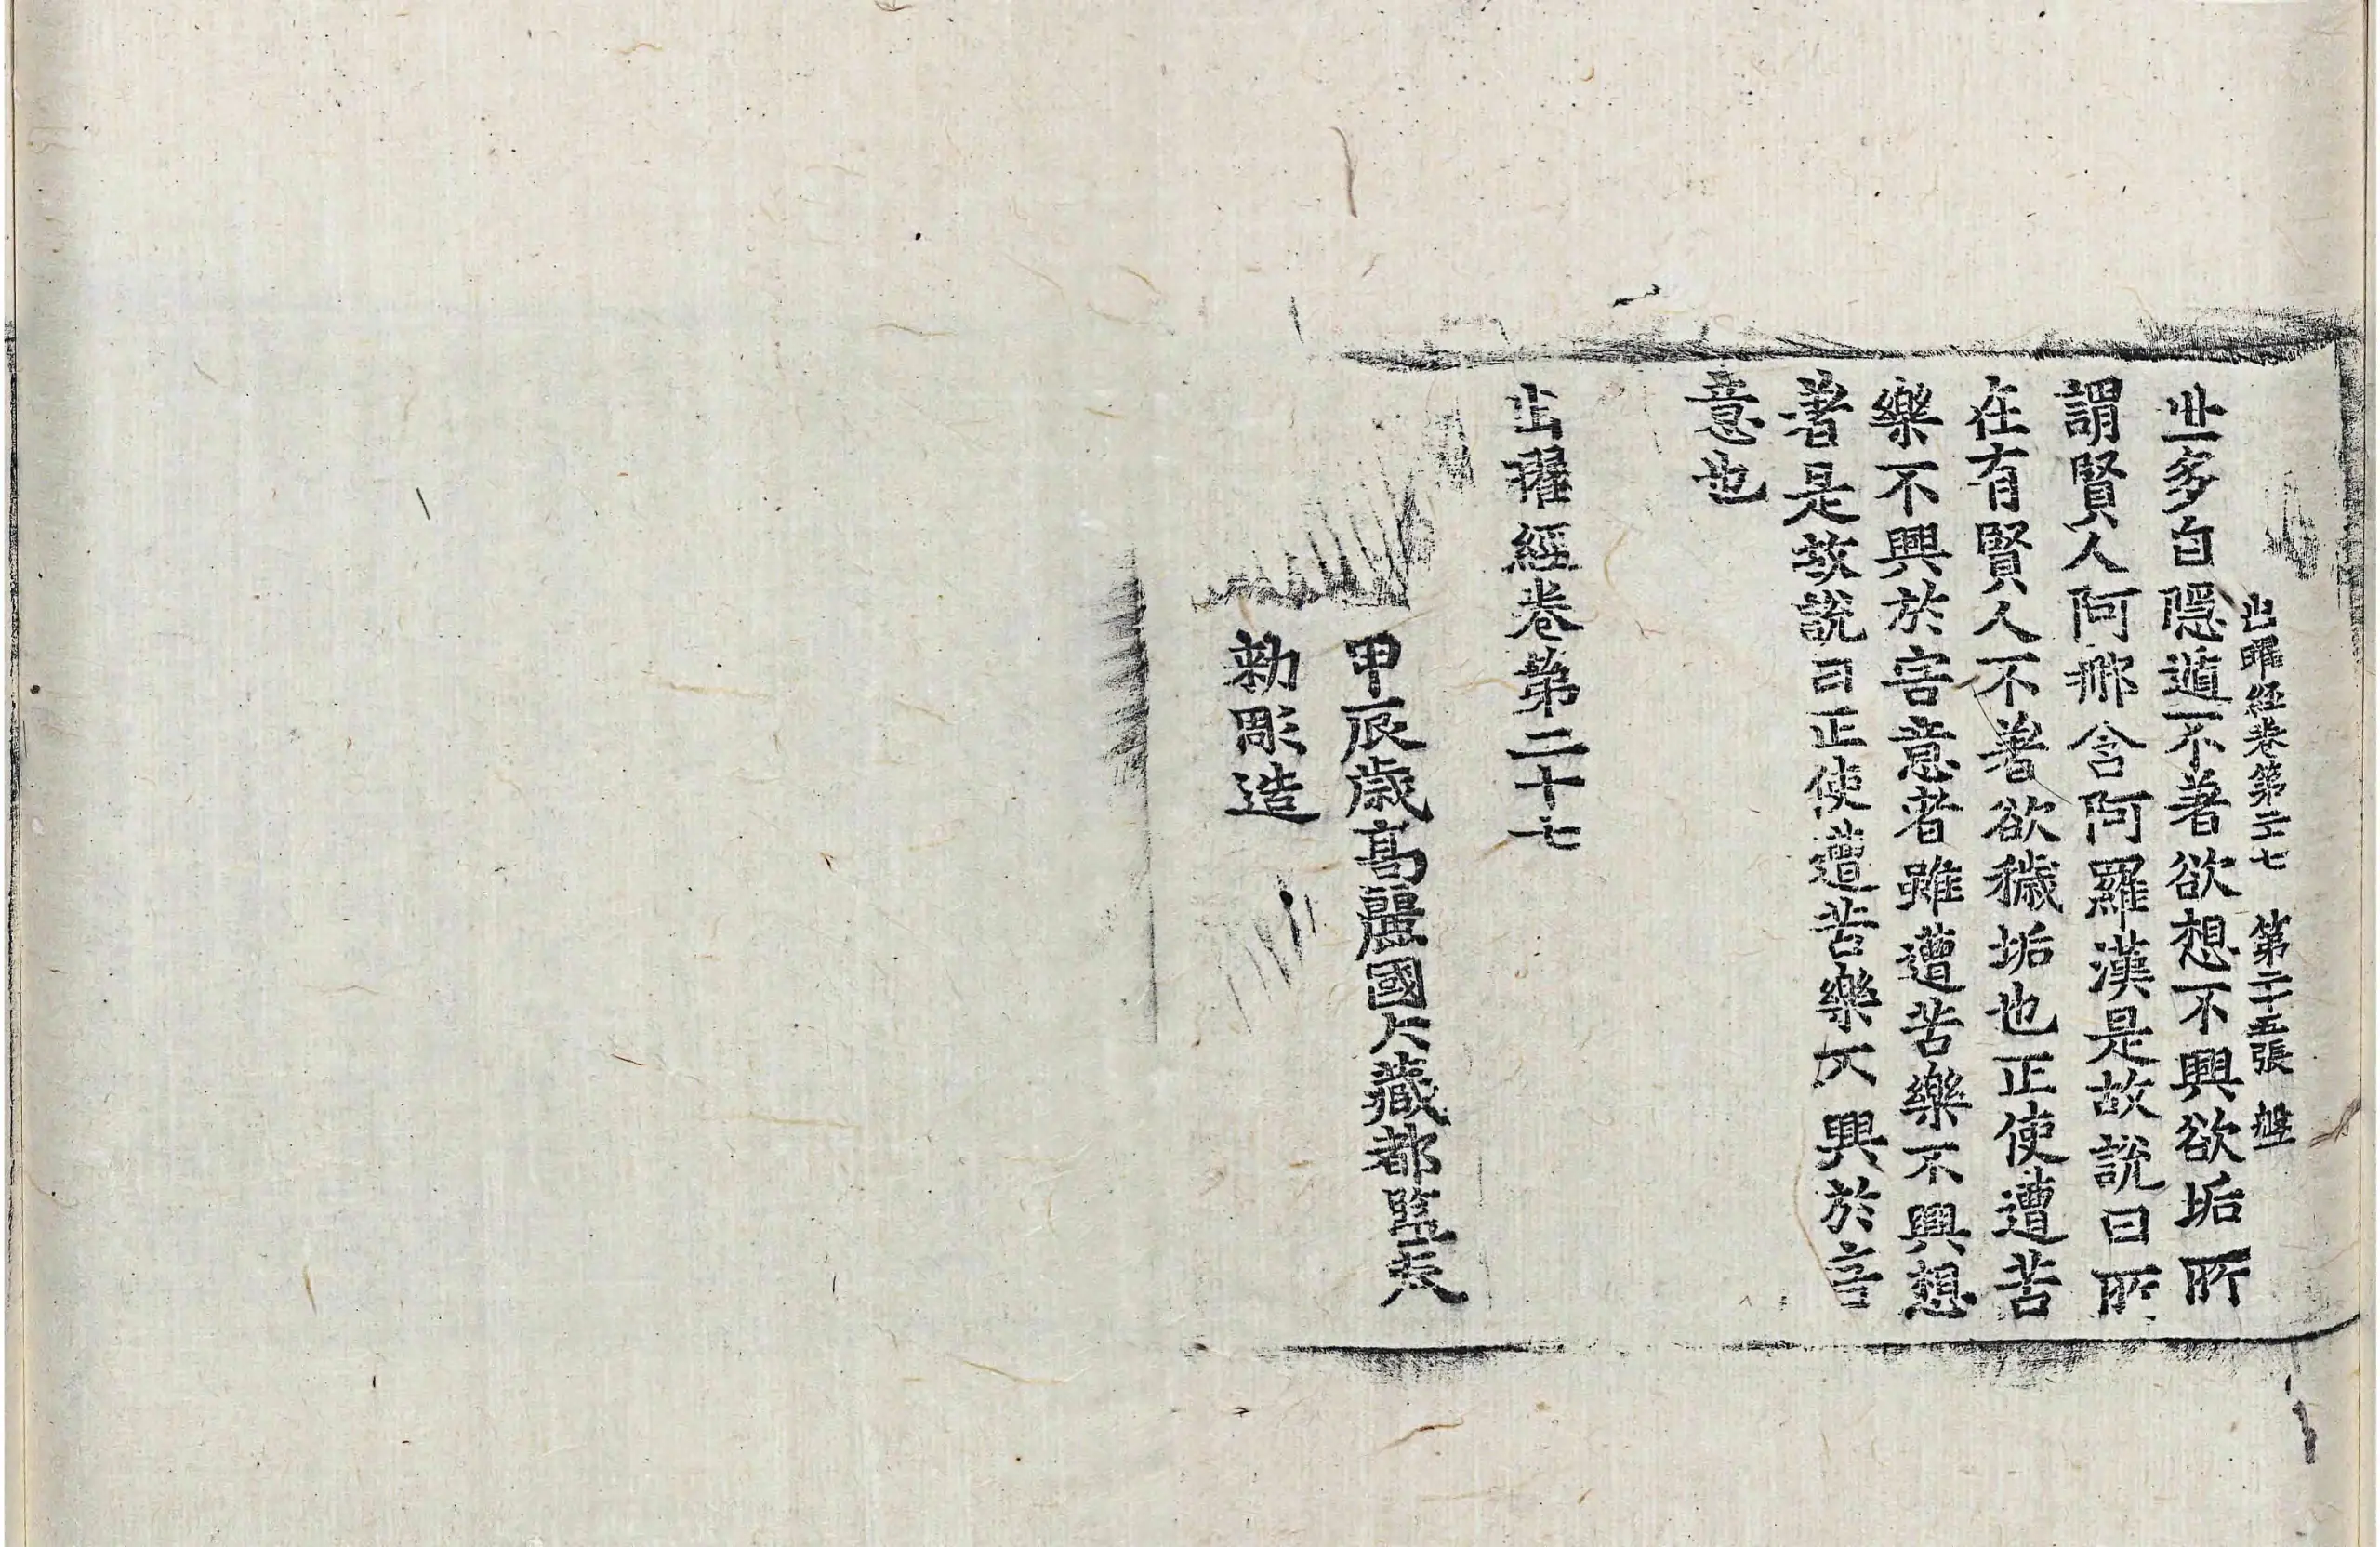 出曜經卷第二七 第二十五張 盤
世多自隱遁不著欲想不興欲垢所
謂賢人阿那含阿羅漢是故說曰所
在有賢人不著欲穢垢也正使遭苦
樂不興於害意者雖遭苦樂不興想
著是故說曰正使遭苦樂不興於害
意也
出曜經卷第二十七
甲辰歲高麗國大藏都監奉
勅彫造